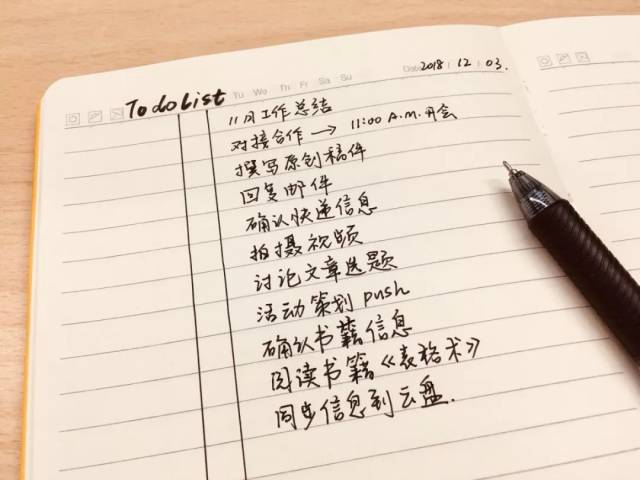 Tu We Th Fr Sa Su Date 2018 / 12 / 03.
To do List
11月工作总结
对接合作 → 11:00 A.M.开会
撰写原创稿件
回复邮件
确认快递信息
拍摄视频
讨论文章选题
活动策划 push
确认书籍信息
阅读书籍《表格术》
同步信息到云盘.